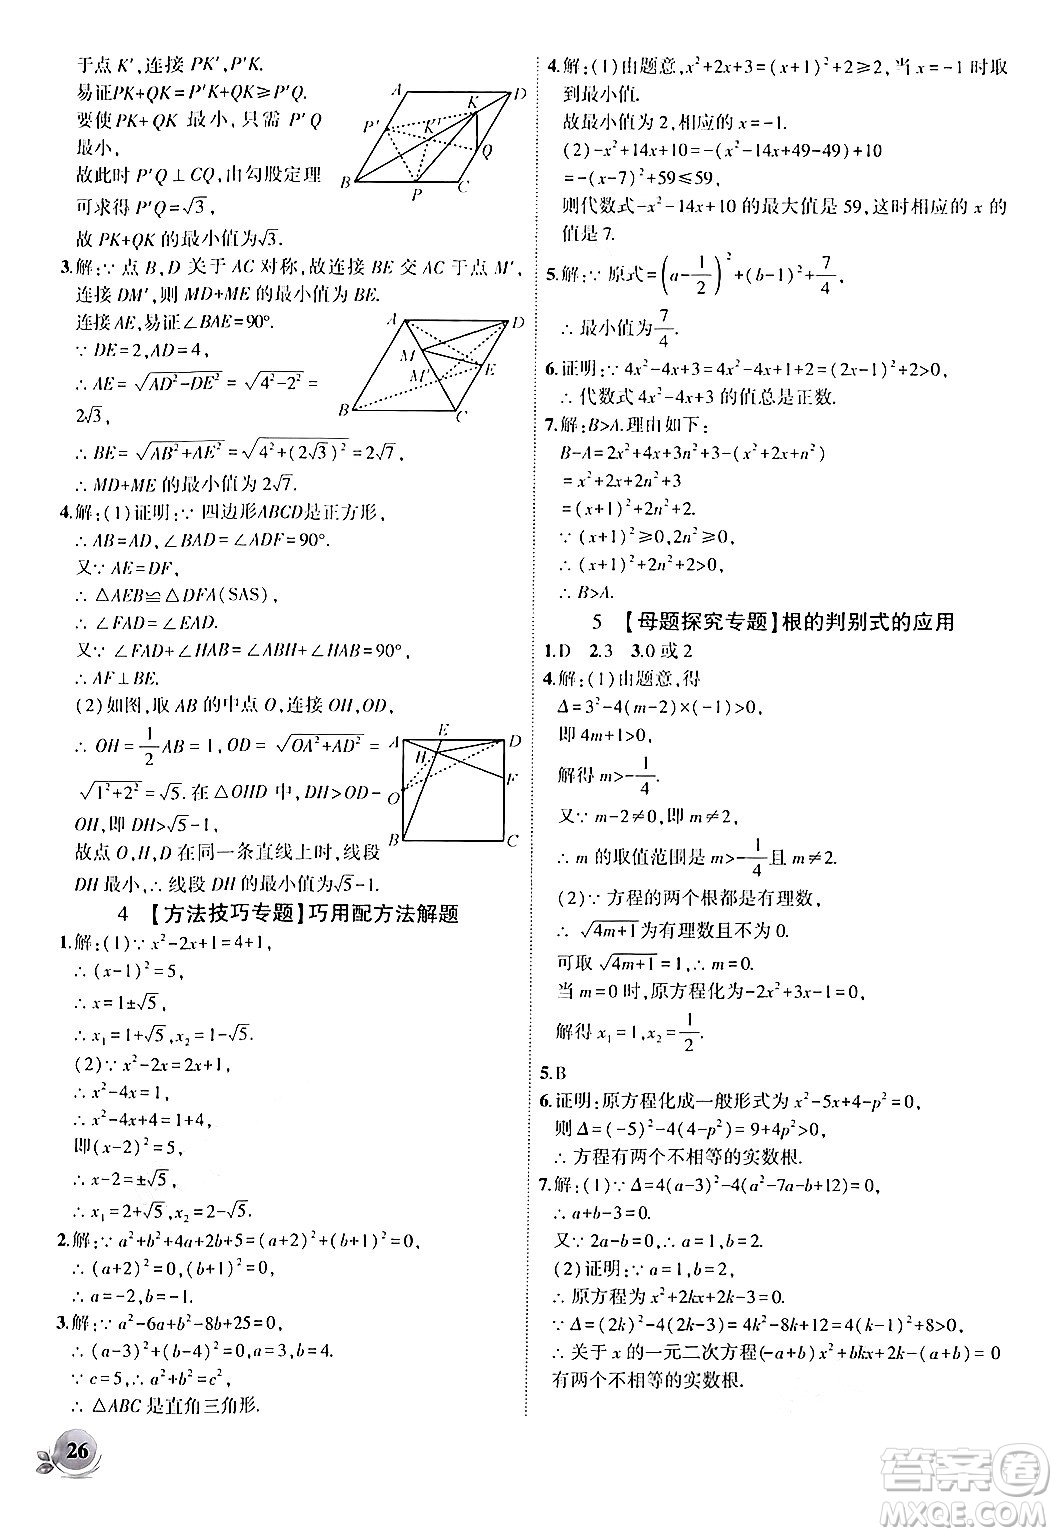 于点 K′,连接 PK′,P′K.
易证PK+QK=P′K+QK≥P′Q.
要使PK+QK 最小,只需 P′Q
最小,
故此时 P′Q⊥CQ,由勾股定理
可求得 P′Q=√3,
故 PK+QK 的最小值为√3.
A D K P′ K′ Q B P C
3.解:∵点 B,D 关于 AC 对称,故连接 BE 交 AC 于点 M′,
连接 DM′,则 MD+ME 的最小值为 BE.
连接 AE,易证∠BAE=90°.
∵DE=2,AD=4,
∴AE=√(AD²-DE²) =√(4²-2²) =
2√3,
∴BE=√(AB²+AE²)=√(4²+(2√3)²)=2√7,
∴MD+ME 的最小值为2√7.
A D M M′ E B C
4.解:(1)证明:∵四边形ABCD是正方形,
∴AB=AD,∠BAD=∠ADF=90°.
又∵AE=DF,
∴△AEB≌△DFA(SAS),
∴∠FAD=∠EBA.
又∵∠FAD+∠HAB=∠EBA+∠HAB=90°,
∴AF⊥BE.
(2)如图,取 AB 的中点 O,连接 OH,OD,
∴OH=1/2AB=1,OD=√(OA²+AD²)=
√(1²+2²)=√5.在△OHD 中,DH>OD-
OH,即 DH>√5-1,
故点 O,H,D 在同一条直线上时,线段
DH 最小,∴线段 DH 的最小值为√5-1.
A E D H F O B C
4 【方法技巧专题】巧用配方法解题
1.解:(1)∵x²-2x+1=4+1,
∴(x-1)²=5,
∴x=1±√5,
∴x₁=1+√5,x₂=1-√5.
(2)∵x²-2x=2x+1,
∴x²-4x=1,
∴x²-4x+4=1+4,
即(x-2)²=5,
∴x-2=±√5,
∴x₁=2+√5,x₂=2-√5.
2.解:∵a²+b²+4a+2b+5=(a+2)²+(b+1)²=0,
∴(a+2)²=0,(b+1)²=0,
∴a=-2,b=-1.
3.解:∵a²-6a+b²-8b+25=0,
∴(a-3)²+(b-4)²=0,∴a=3,b=4.
∵c=5,∴a²+b²=c²,
∴△ABC 是直角三角形.
26
4.解:(1)由题意,x²+2x+3=(x+1)²+2≥2,当 x=-1时取
到最小值.
故最小值为 2,相应的 x=-1.
(2)-x²+14x+10=-(x²-14x+49-49)+10
=-(x-7)²+59≤59,
则代数式-x²-14x+10 的最大值是 59,这时相应的 x 的
值是 7.
5.解:∵原式=(a-1/2)²+(b-1)²+7/4,
∴最小值为7/4.
6.证明:∵4x²-4x+3=4x²-4x+1+2=(2x-1)²+2>0,
∴代数式 4x²-4x+3 的值总是正数.
7.解:B>A.理由如下:
B-A=2x²+4x+3+3n²-(x²+2x+n²+2)
=x²+2x+2n²+1
=(x+1)²+2n².
∵(x+1)²≥0,2n²≥0,
∴(x+1)²+2n²+1>0,
∴B>A.
5 【母题探究专题】根的判别式的应用
1.D 2.3 3.0 或 2
4.解:(1)由题意,得
Δ=3²-4(m-2)×(-1)>0,
即 4m+1>0,
解得 m>-1/4.
又∵m-2≠0,即 m≠2,
∴m 的取值范围是 m>-1/4且 m≠2.
(2)∵方程的两个根都是有理数,
∴√(4m+1)为有理数且不为 0.
可取√(4m+1)=1,∴m=0.
当 m=0时,原方程化为-2x²+3x-1=0,
解得 x₁=1,x₂=1/2.
5.B
6.证明:原方程化成一般形式为 x²-5x+4-p²=0,
则 Δ=(-5)²-4(4-p²)=9+4p²>0,
∴方程有两个不相等的实数根.
7.解:(1)∵Δ=4(a-3)²-4(a²-7a-b+12)=0,
∴a+b-3=0.
又∵2a-b=0,∴a=1,b=2.
(2)证明:∵a=1,b=2,
∴原方程为 x²+2kx+2k-3=0.
∵Δ=(2k)²-4(2k-3)=4k²-8k+12=4(k-1)²+8>0,
∴关于 x 的一元二次方程(-a+b)x²+bkx-(a+b)=0
有两个不相等的实数根.
答案圈
MXQE.COM